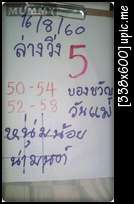 MUMMY
16/8/60
ล่างวิ่ง 5
50-54 ของขวัญ
52-58 วันแม่
หนุ่มน้อย
น่ามนต์
[338x600] upic.me